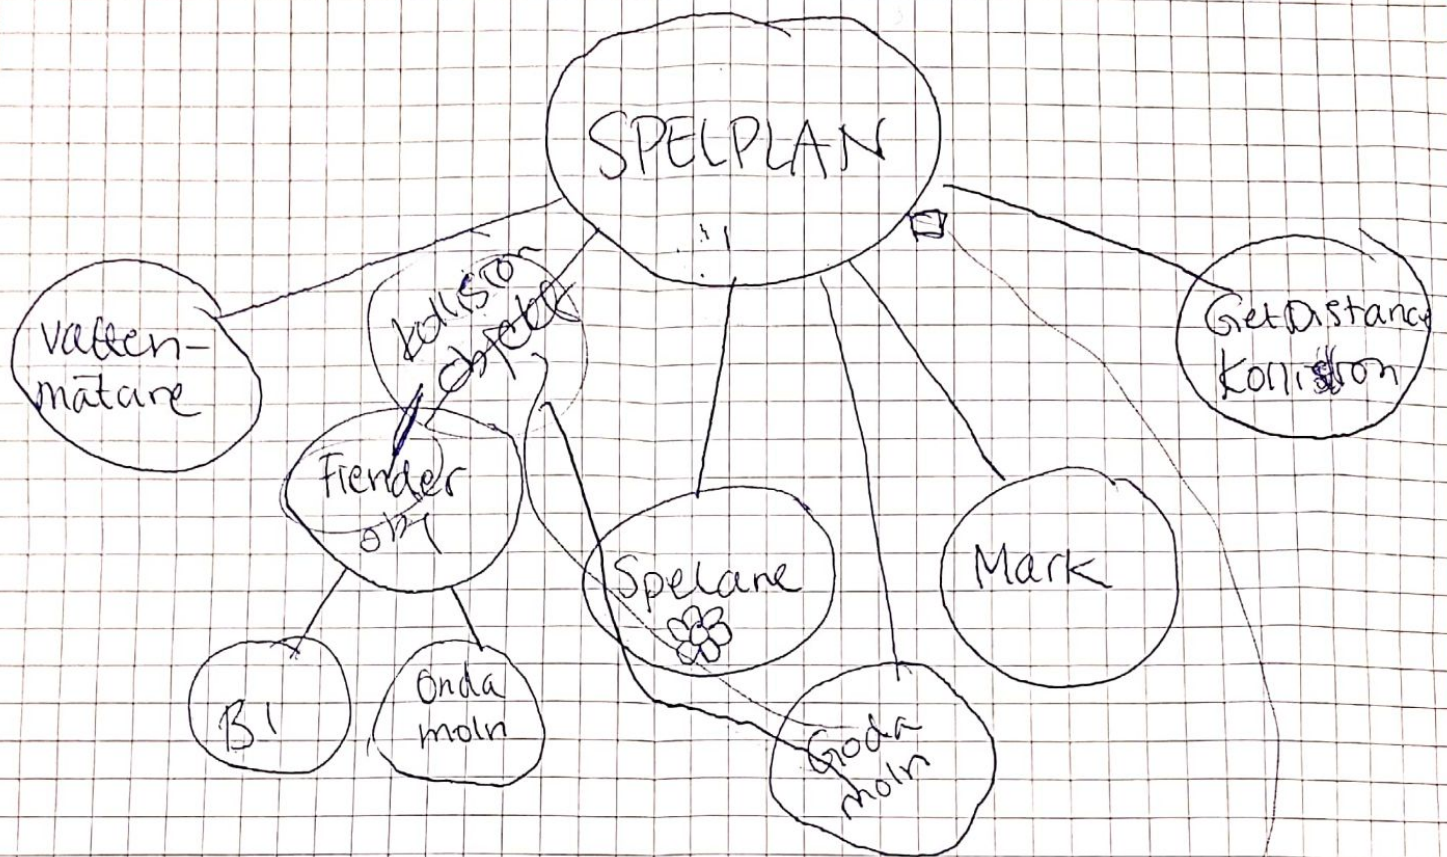 SPELPLAN
Vatten-
mätare
kollision
objekt
GetDistance
Kollision
Fiender
obj
Spelare
Mark
Bi
Onda
moln
Goda
moln